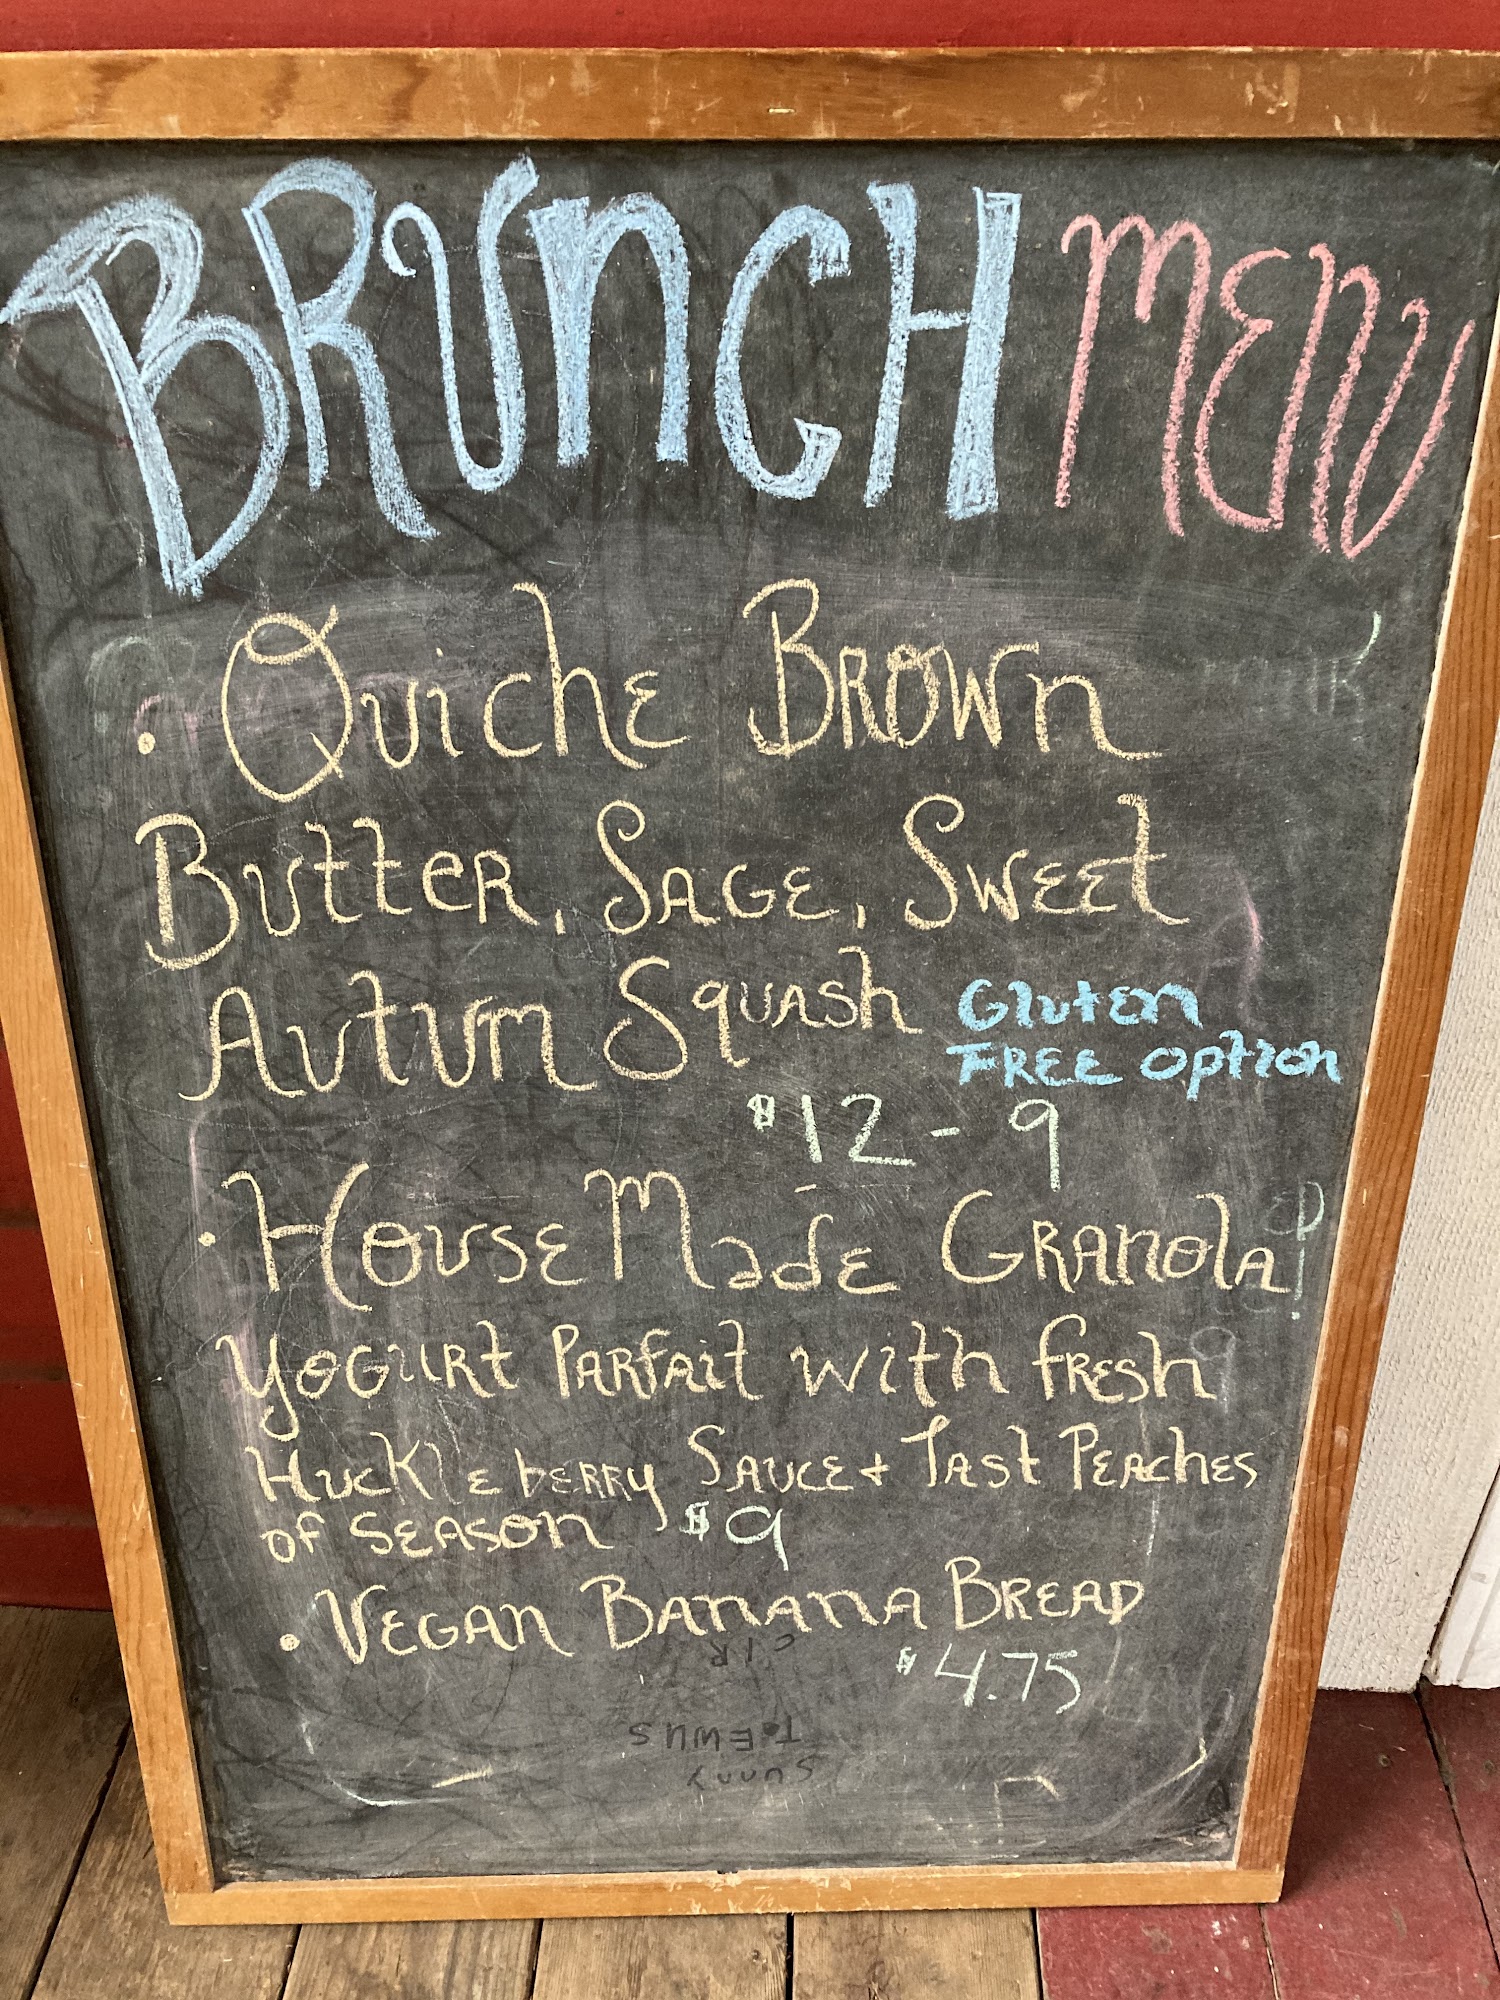 BRUNCH MENU
• Quiche Brown
Butter, Sage, Sweet
Autum Squash Gluten
Free option
$12 - 9
• HouseMade Granola
Yogurt Parfait with fresh
Huckleberry Sauce + Last Peaches
of Season $9
• Vegan Banana Bread
$4.75